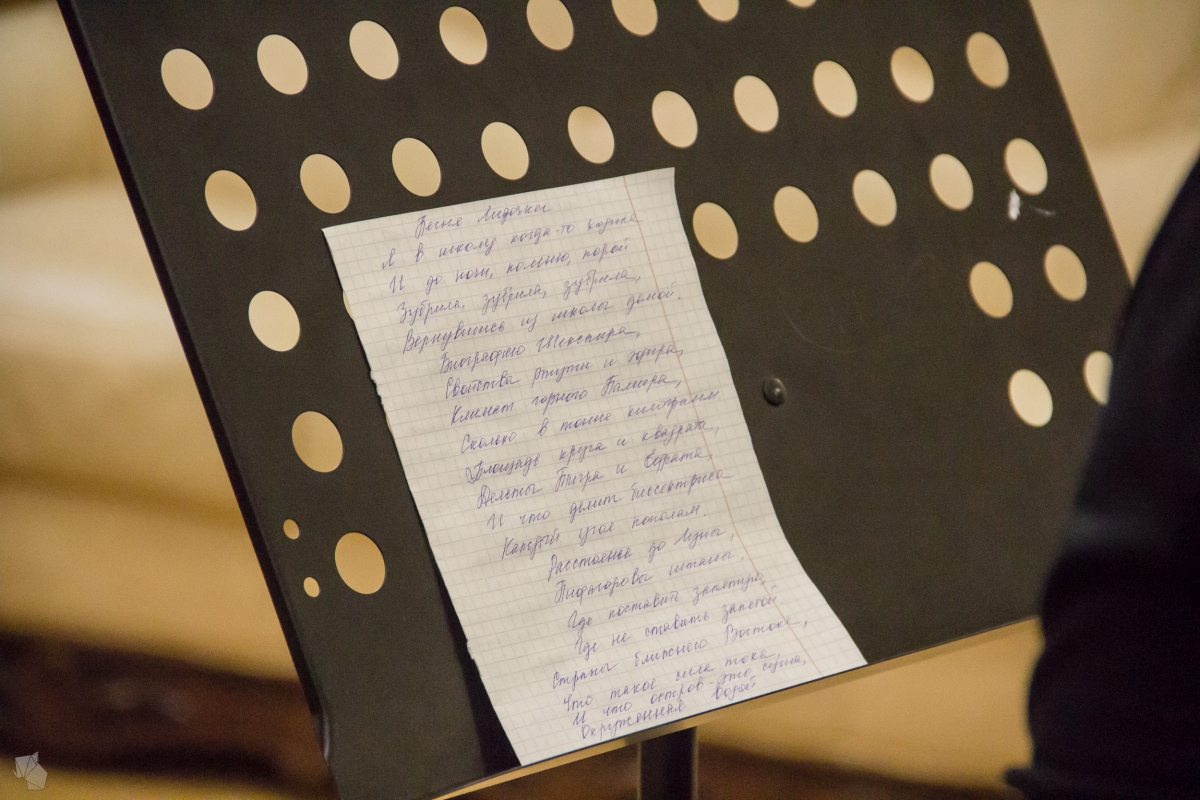 Песня Лидочки
Я в школу когда-то ходила
И до ночи, помню, порой
Зубрила, зубрила, зубрила,
Вернувшись из школы домой.
Биографию Шекспира,
Свойства ртути и эфира,
Климат горного Памира,
Сколько в тонне килограмм
Площадь круга и квадрата,
Дельты Тигра и Евфрата,
И что делит биссектриса
Каждый угол пополам.
Расстояние до Луны,
Пифагоровы штаны.
Где поставить запятую,
Где не ставить запятой
Страны Ближнего Востока,
Что такое сила тока,
И что остров - это суша,
Окруженная водой